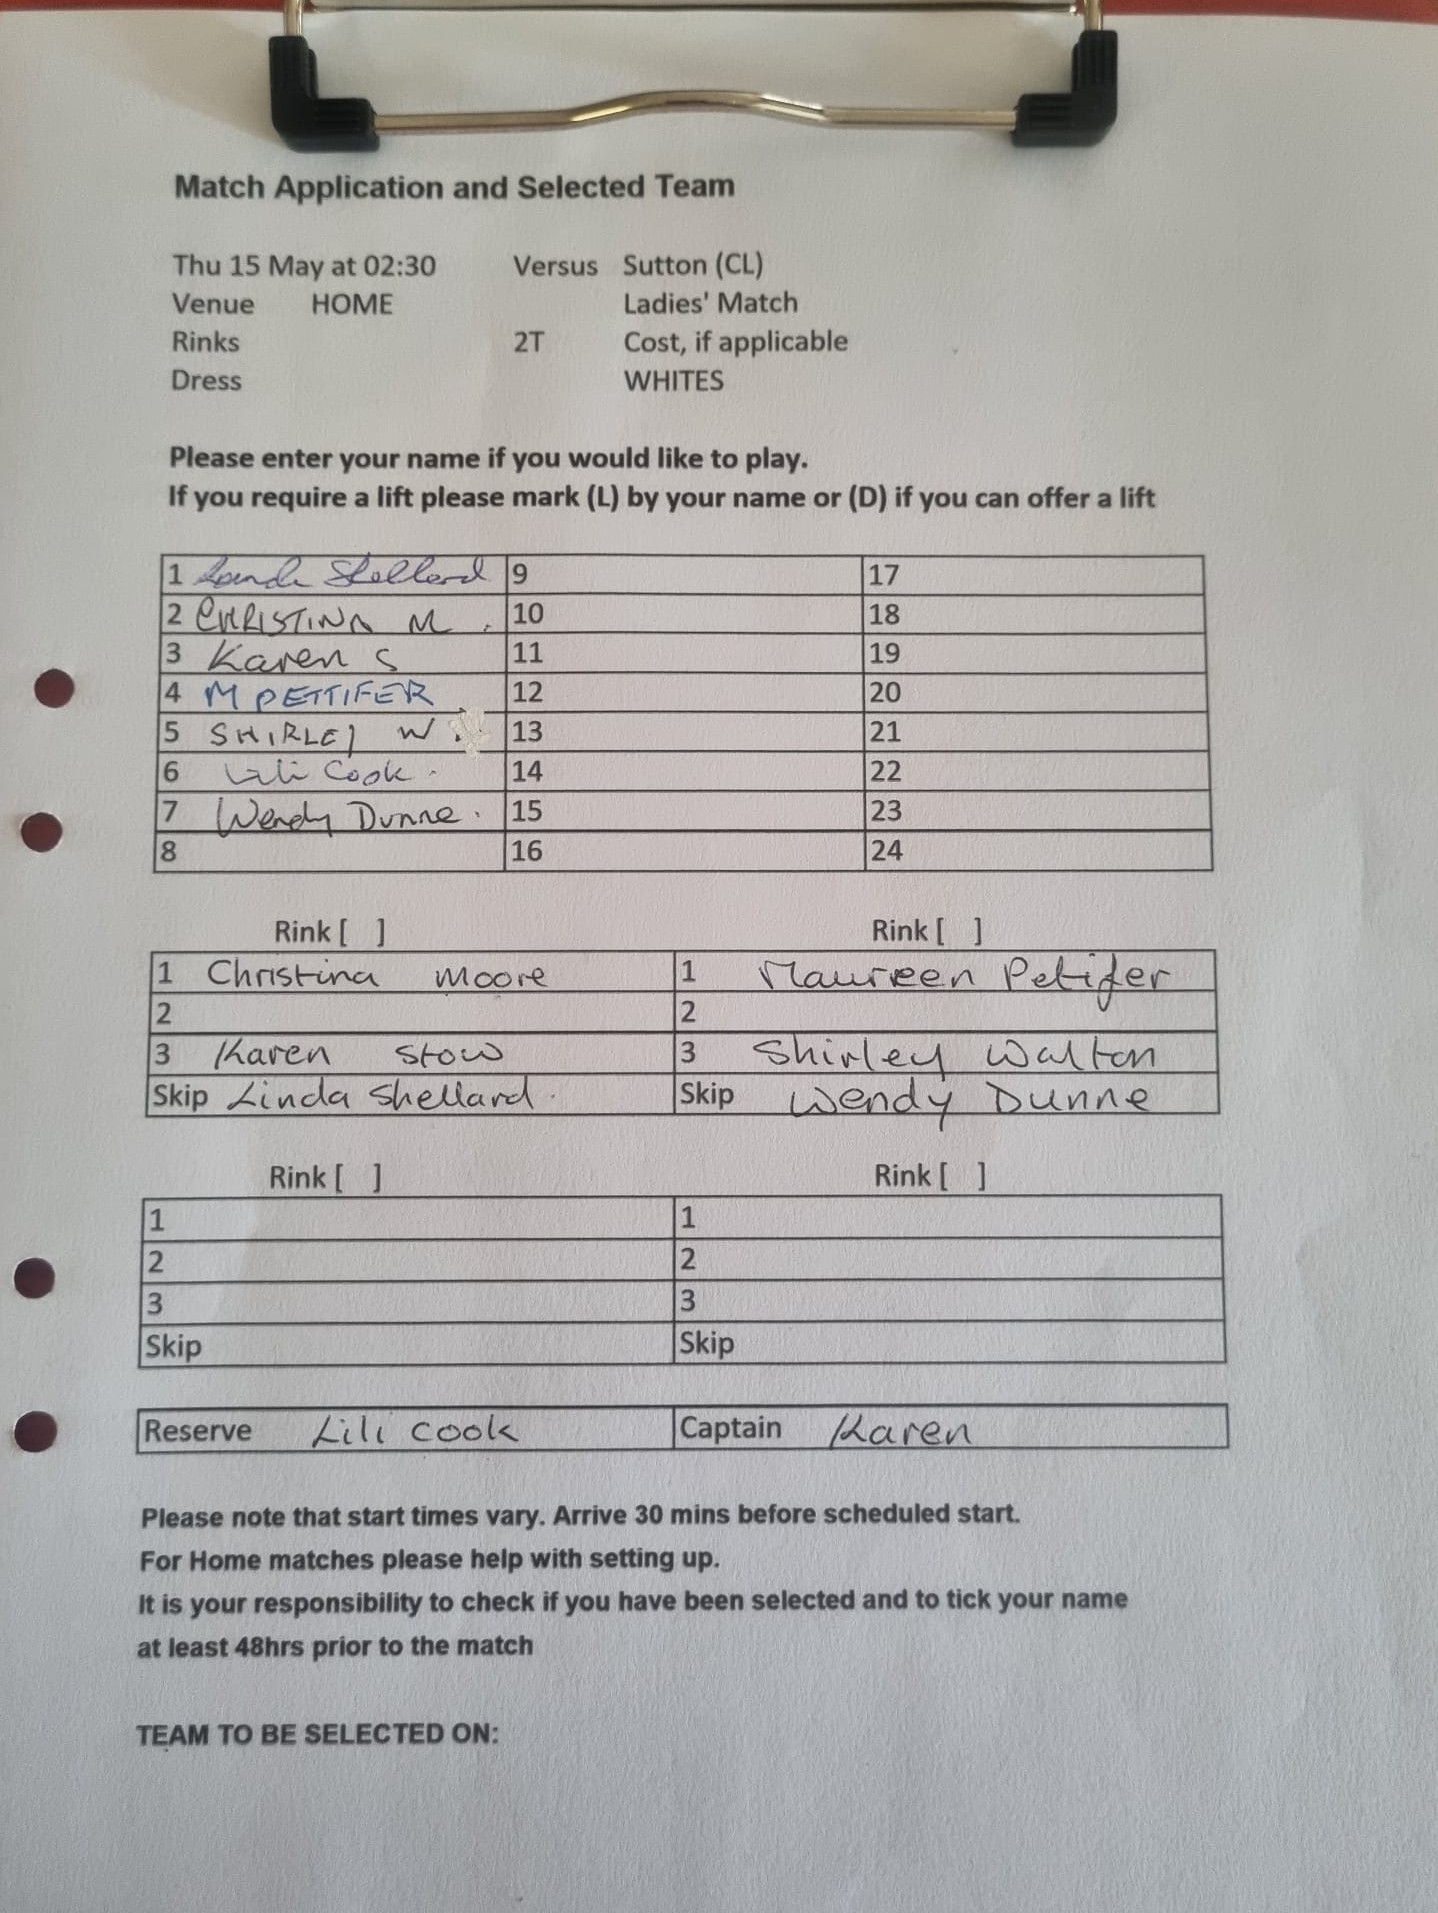 Match Application and Selected Team
Thu 15 May at 02:30 Versus Sutton (CL)
Venue HOME Ladies' Match
Rinks 2T Cost, if applicable
Dress WHITES
Please enter your name if you would like to play.
If you require a lift please mark (L) by your name or (D) if you can offer a lift
1 Linda Shellard 9 17
2 CHRISTINA M. 10 18
3 Karen S 11 19
4 M PETTIFER 12 20
5 SHIRLEY W 13 21
6 Lili Cook. 14 22
7 Wendy Dunne. 15 23
8 16 24
Rink [ ] Rink [ ]
1 Christina Moore 1 Maureen Petifer
2 2
3 Karen Stow 3 Shirley Walton
Skip Linda Shellard. Skip Wendy Dunne
Rink [ ] Rink [ ]
1 1
2 2
3 3
Skip Skip
Reserve Lili Cook Captain Karen
Please note that start times vary. Arrive 30 mins before scheduled start.
For Home matches please help with setting up.
It is your responsibility to check if you have been selected and to tick your name
at least 48hrs prior to the match
TEAM TO BE SELECTED ON: